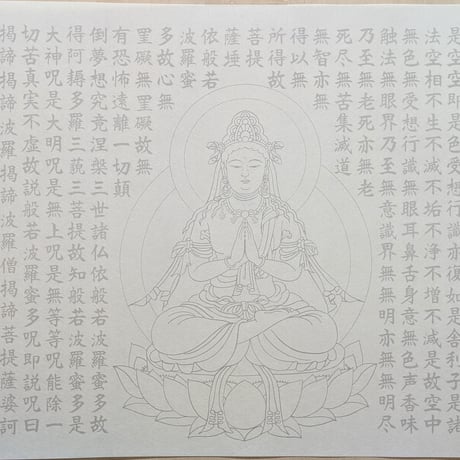 是空空即是色受想行識亦復如是舎利子是諸
法空相不生不滅不垢不浄不増不減是故空中
無色無受想行識無眼耳鼻舌身意無色声香味
触法無眼界乃至無意識界無無明亦無無明尽
乃至無老死亦無老
死尽無苦集滅道
無智亦無
得以無
所得故
菩提
薩埵
依般若
波羅蜜
多故心無
罣礙無罣礙故無
有恐怖遠離一切顛
倒夢想究竟涅槃三世諸仏依般若波羅蜜多故
得阿耨多羅三藐三菩提故知般若波羅蜜多是
大神呪是大明呪是無上呪是無等等呪能除一
切苦真実不虚故説般若波羅蜜多呪即説呪曰
掲諦掲諦波羅掲諦波羅僧掲諦菩提薩婆訶